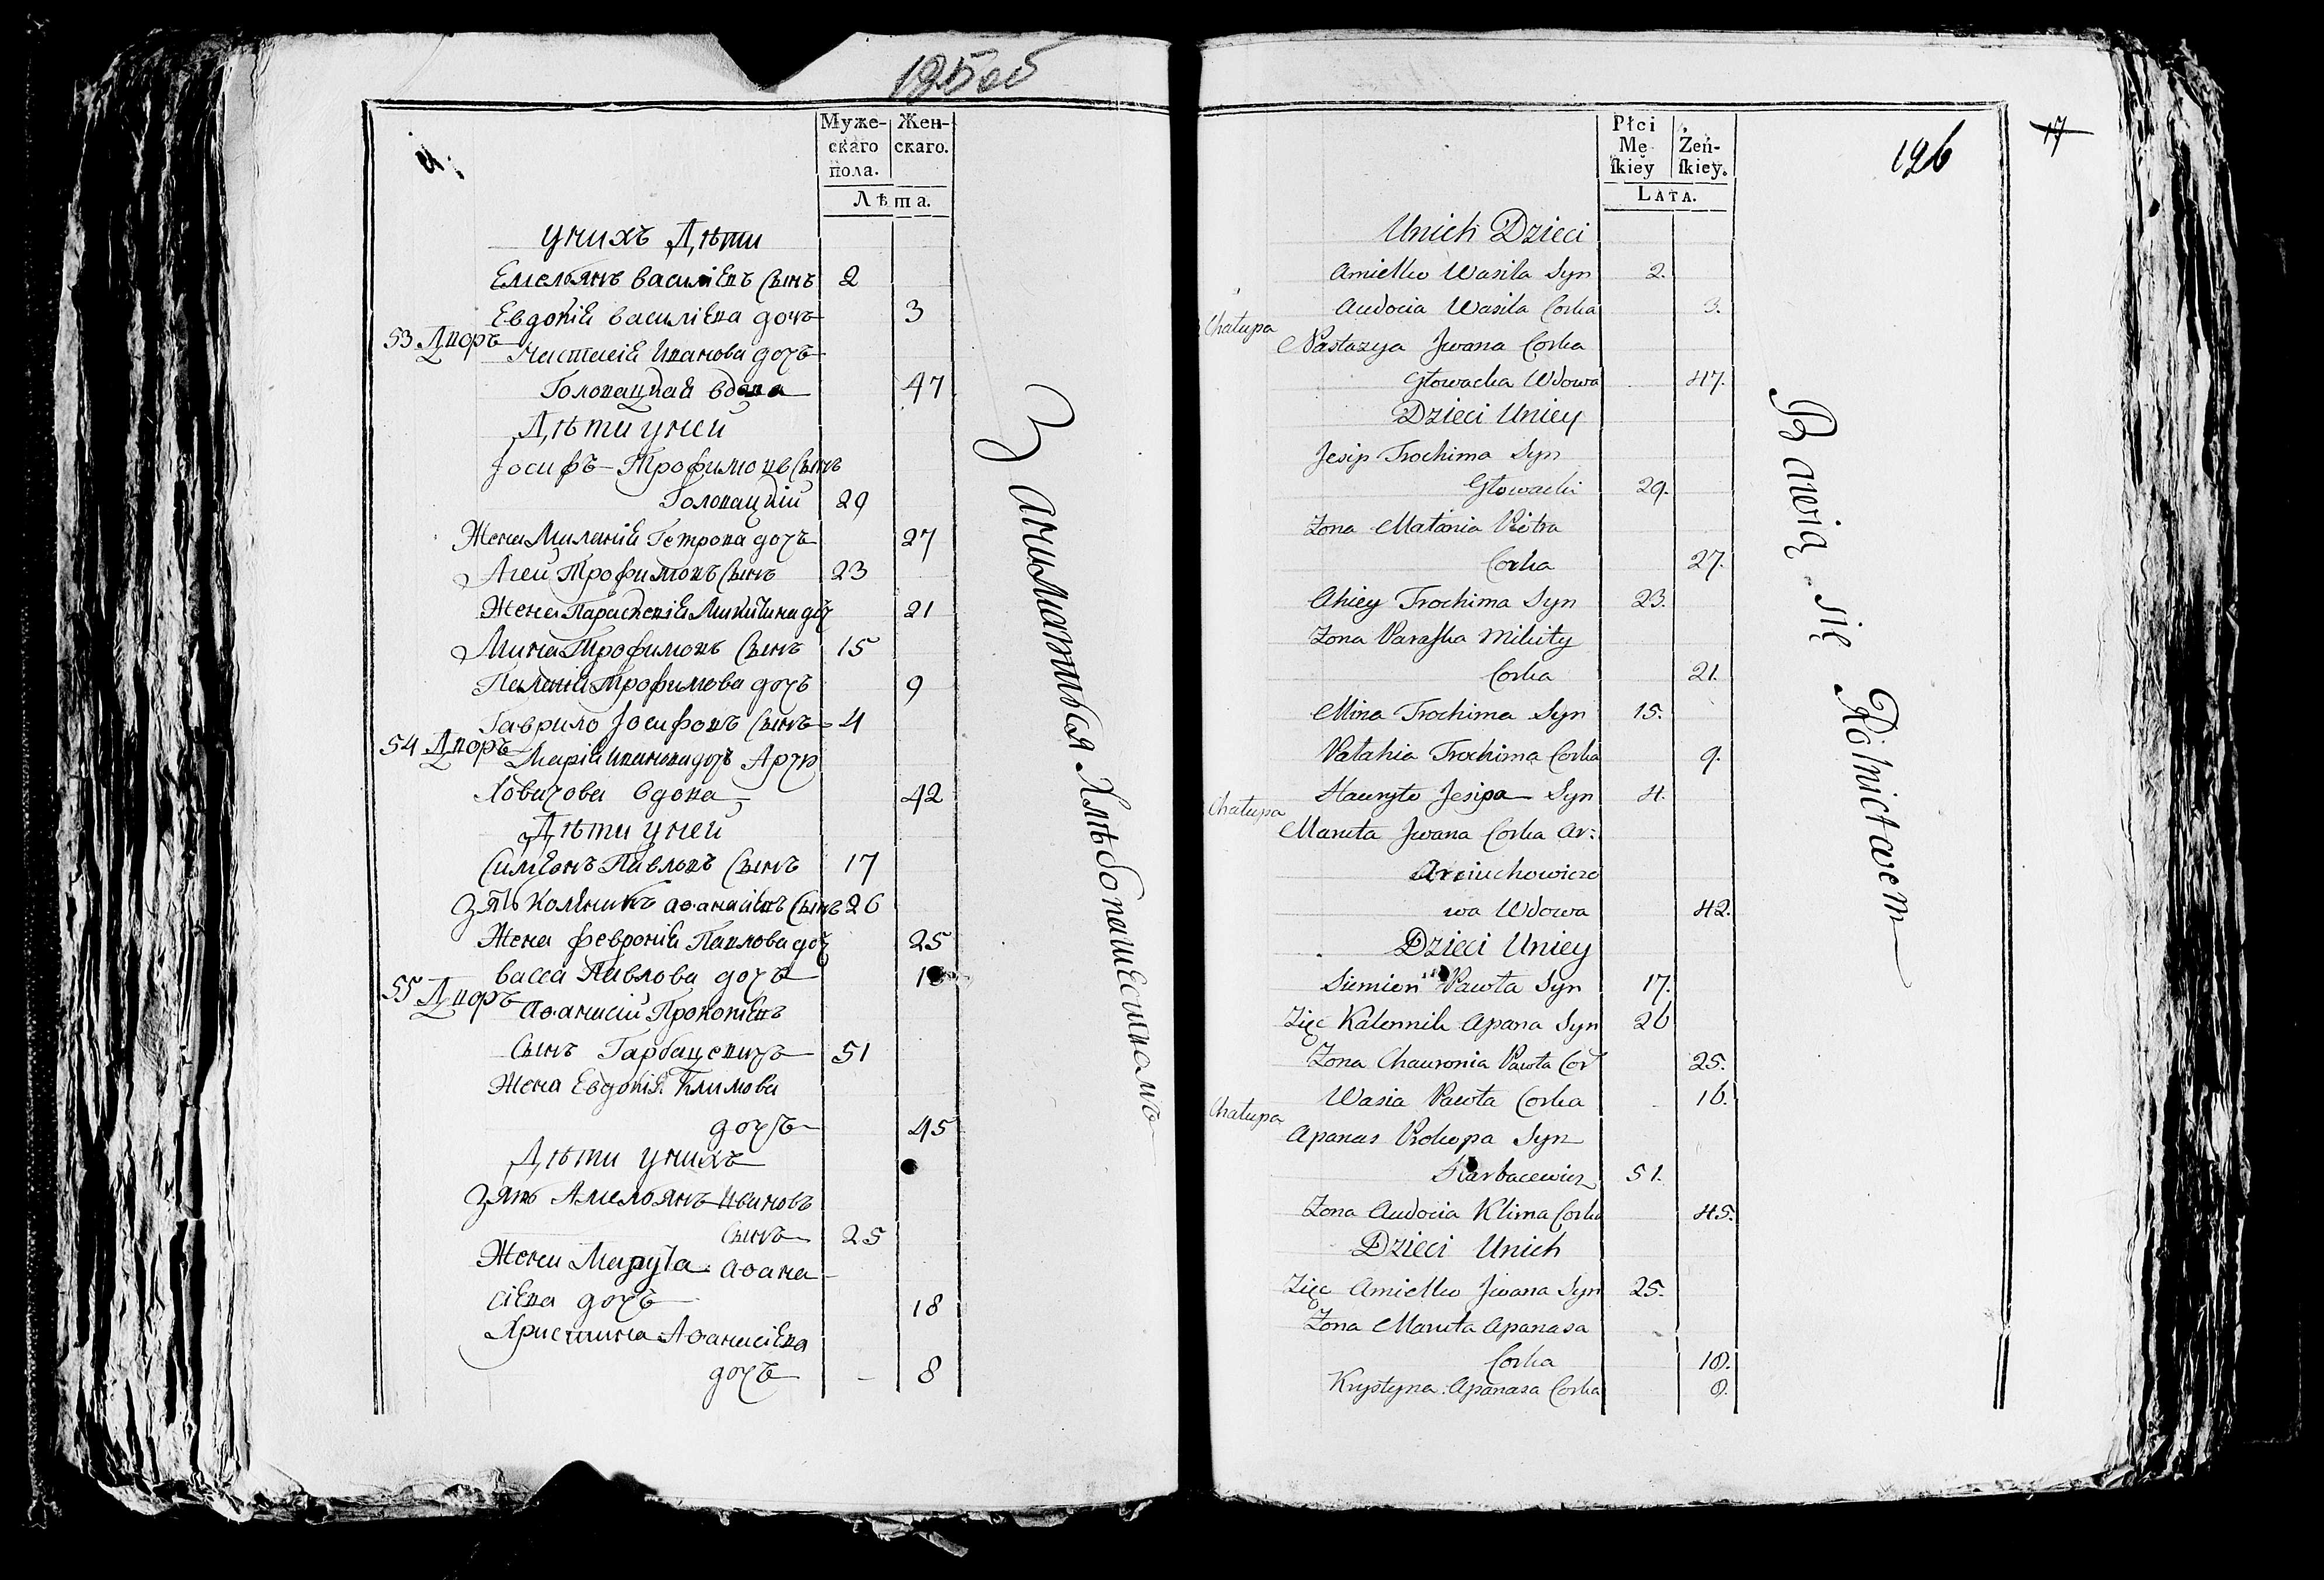 125 об
Муже- Жен-
скаго скаго.
пола.
Лѣта.
У нихъ Дѣти
Емельянъ Василіевъ Сынъ 2
Евдокія Василіева дочь 3
53 Дворъ
Настасія Иванова дочь
Головацкая вдова 47
Дѣти у ней
Іосифъ Трофимовъ Сынъ
Головацкій 29
Жена Миланія Петрова дочь 27
Агей Трофимовъ Сынъ 23
Жена Параскевія Микитина доч 21
Мина Трофимовъ Сынъ 15
Палагія Трофимова дочь 9
Гаврило Іосифовъ Сынъ 4
54 Дворъ
Марія Иванова дочь Арти
ховичова вдова 42
Дѣти у ней
Симіонъ Павловъ Сынъ 17
Зять Колѣникъ Аѳанасіевъ Сынъ 26
Жена Февронія Павлова доч 25
Васса Павлова дочь
55 Дворъ
Аѳанасій Прокопіевъ
Сынъ Гарбацевичъ 51
Жена Евдокія Климова
дочь 45
Дѣти у нихъ
Зять Амельянъ Ивановъ
Сынъ 25
Жена Марута Аѳана
сіева дочь 18
Христина Аѳанасіева
дочь 8
Занимаются Хлѣбопашествомъ
Płci
Mę Żeń-
ſkiey ſkiey.
LATA.
126
17
Unich Dzieci
Amielko Wasila Syn 2.
Audocia Wasila Corka 3.
Chałupa
Nastazya Jwana Corka
Głowacka Wdowa 47.
Dzieci Uniey
Jesip Trochima Syn
Głowacki 29.
Zona Małania Pietra
Corka 27.
Ahiey Trochima Syn 23.
Zona Paraſka Mikity
Corka 21.
Mina Trochima Syn 15.
Pałahia Trochima Corka 9.
Hauryło Jesipa Syn 4.
Chałupa
Maruta Jwana Corka Ar:
Arciuchowiczo
wa Wdowa 42.
Dzieci Uniey
Siemion Pawła Syn 17.
Zięc Kalennik Apana Syn 26
Zona Chauronia Pawła Cor 25.
Wasia Pawła Corka 16.
Chałupa
Apanas Prokopa Syn
Harbacewicz 51.
Zona Audocia Klima Corka 45.
Dzieci Unich
Zięc Amielko Jwana Syn 25.
Zona Maruta Apanasa
Corka 18.
Krystyna Apanasa Corka 8.
Bawią się Rolnictwem